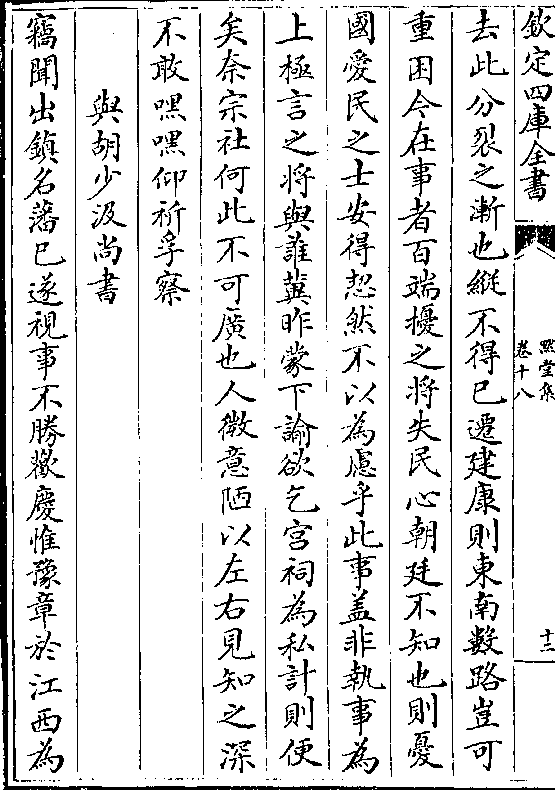 欽定四庫全書
默堂集
卷十八
十三
去此分裂之漸也縱不得已遷建康則東南數路豈可
重困今在事者百端擾之將失民心朝廷不知也則憂
國愛民之士安得恝然不以為慮乎此事盖非執事為
上極言之将與誰冀昨蒙下諭欲乞宫祠為私計則便
矣奈宗社何此不可廣也人微意陋以左右見知之深
不敢嘿嘿仰祈孚察
與胡少汲尚書
竊聞出鎮名藩已遂視事不勝歡慶惟豫章於江西為